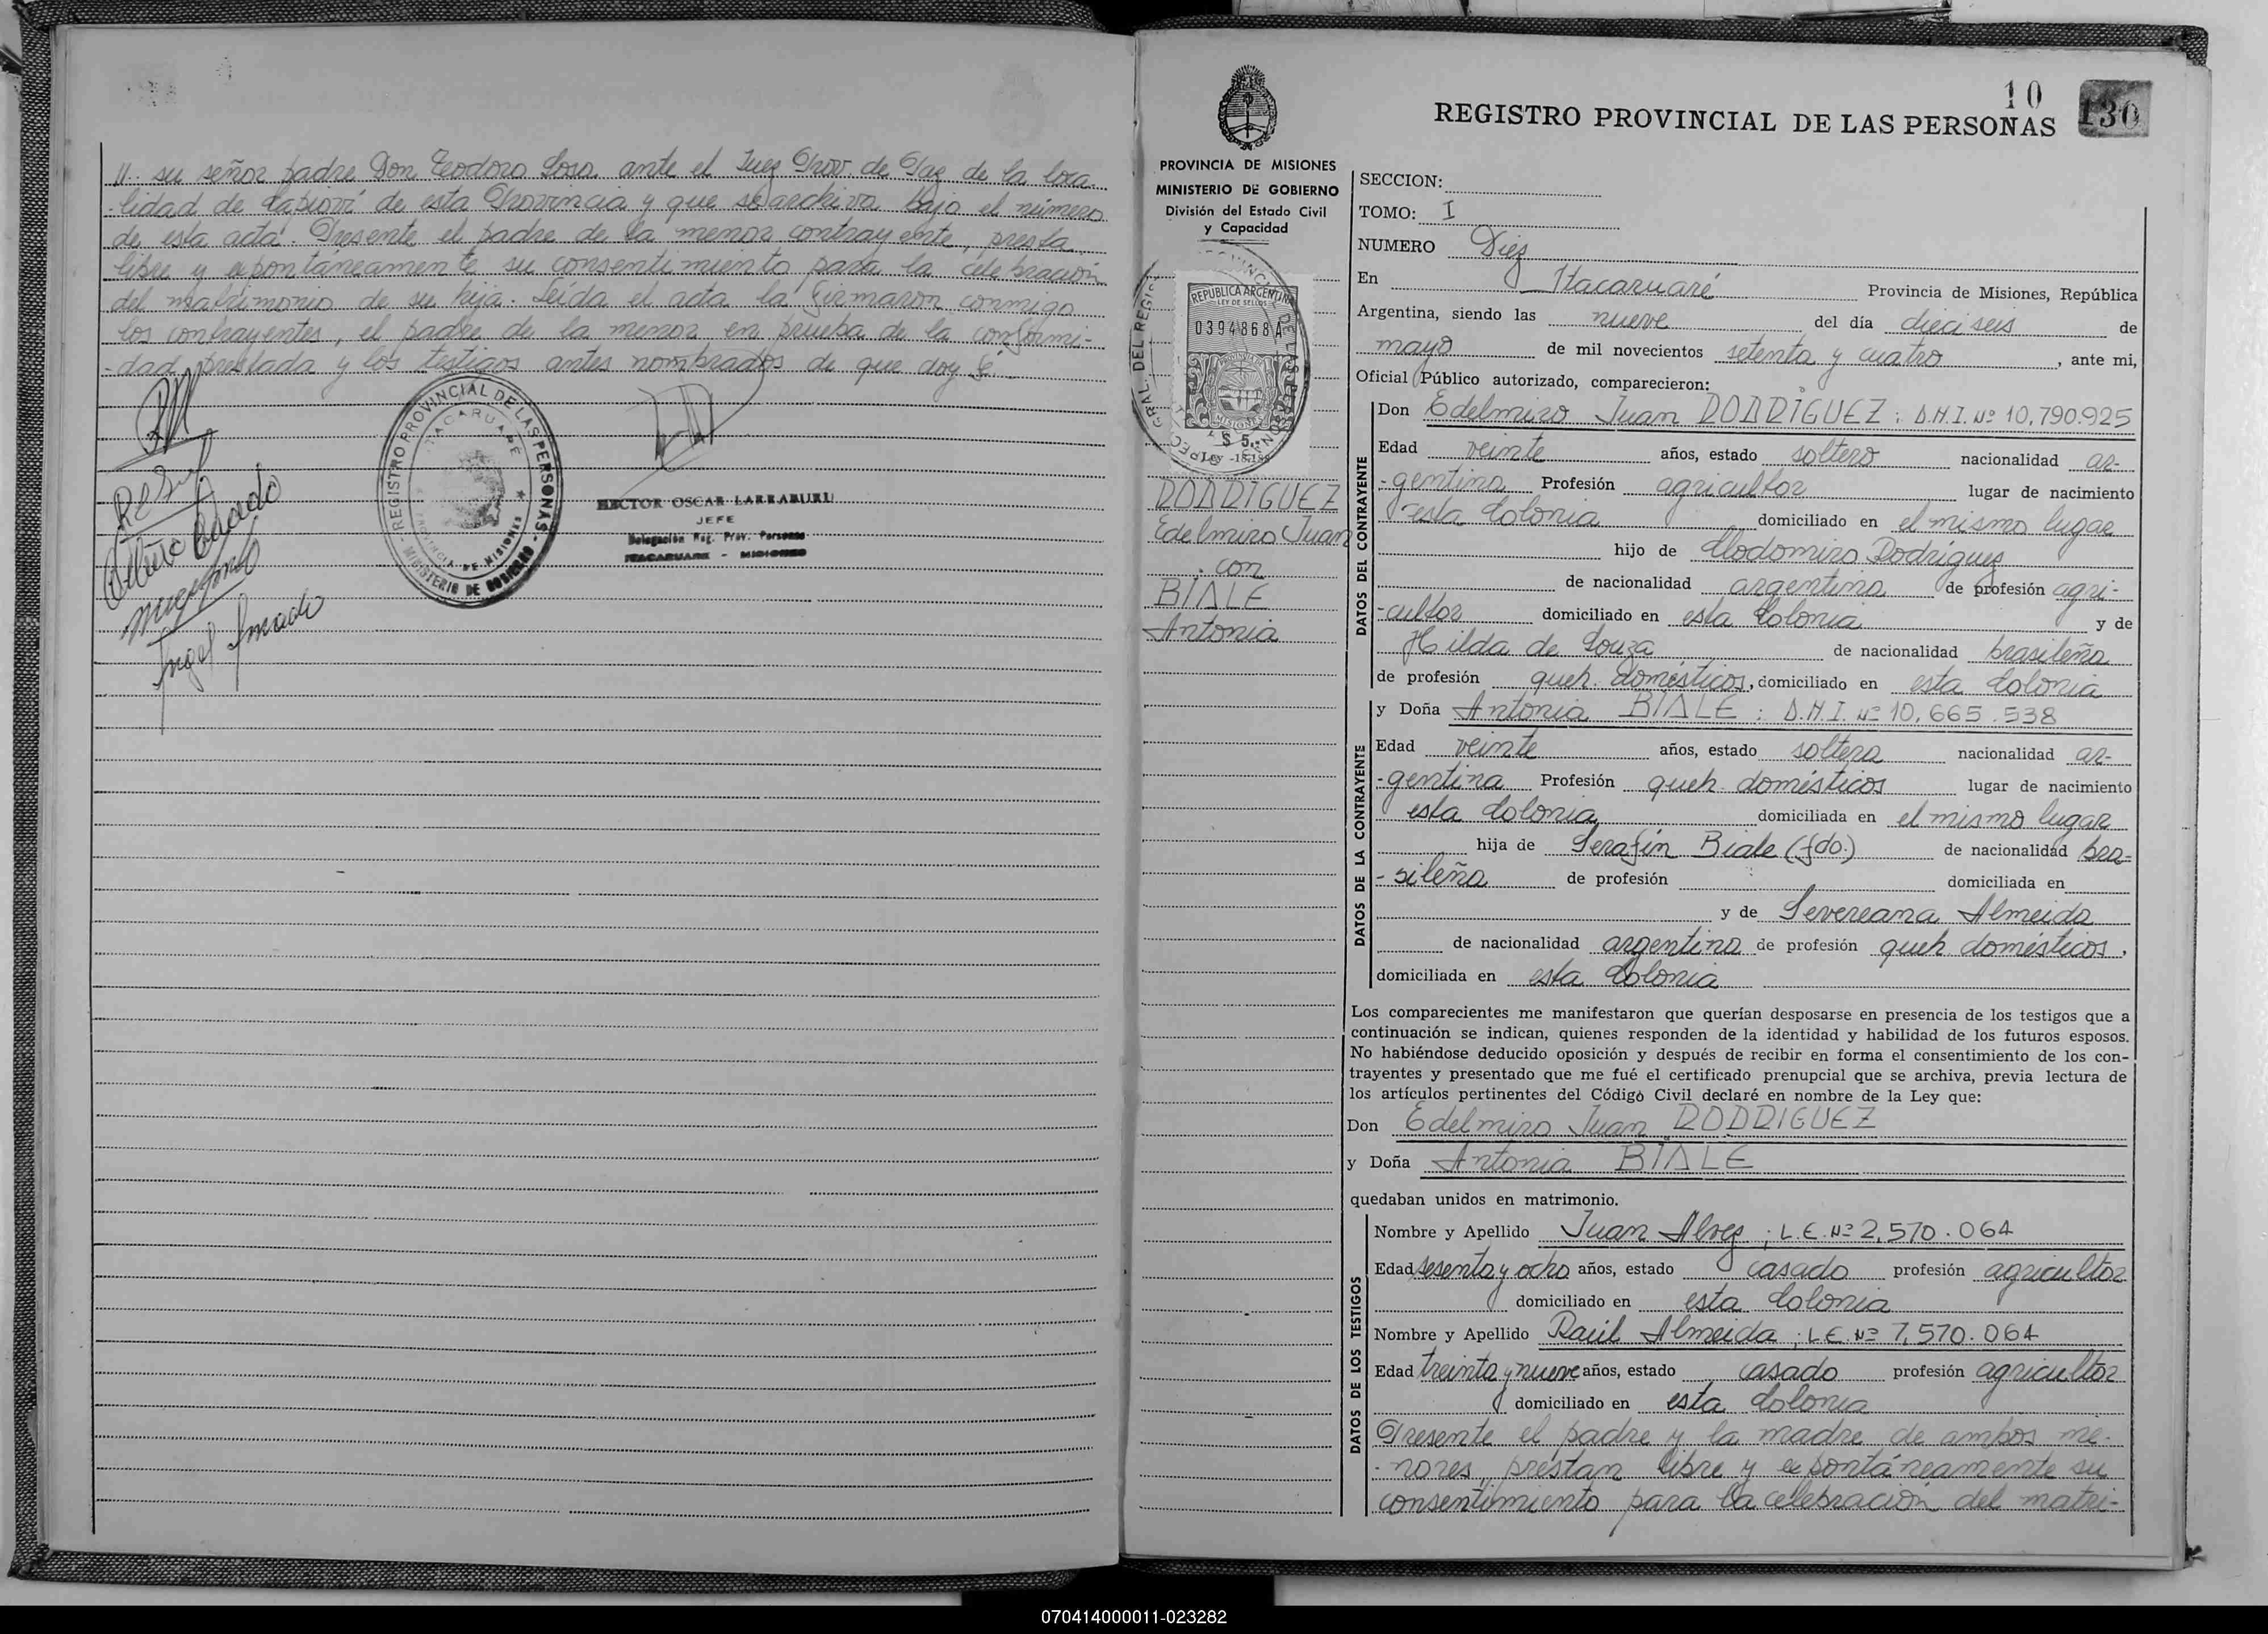 //.. su señor padre Don Teodoro Sosa ante el Juez Prov. de Paz de la loca-
-lidad de Capioví de esta Provincia y que se archiva bajo el número
de esta acta. Presente el padre de la menor contrayente, presta
libre y expontáneamente su consentimiento para la celebración
del matrimonio de su hija. Leída el acta la firmaron conmigo
los contrayentes, el padre de la menor en prueba de la conformi-
-dad prestada y los testigos antes nombrados de que doy fé.
REGISTRO PROVINCIAL DE LAS PERSONAS
ITACARUARE
PROVINCIA DE MISIONES
MINISTERIO DE GOBIERNO
HECTOR OSCAR LARRABURU
JEFE
Delegación Reg. Prov. Personas
ITACARUARE - MISIONES
Angel Amado
10
130
REGISTRO PROVINCIAL DE LAS PERSONAS
PROVINCIA DE MISIONES
MINISTERIO DE GOBIERNO
División del Estado Civil
y Capacidad
REPUBLICA ARGENTINA
LEY DE SELLOS
0394868A
MISIONES
$ 5.-
RODRIGUEZ
Edelmiro Juan
con
BIALE
Antonia
SECCION:
TOMO: I
NUMERO Diez
En Itacaruaré Provincia de Misiones, República
Argentina, siendo las nueve del día dieciseis de
mayo de mil novecientos setenta y cuatro, ante mi,
Oficial Público autorizado, comparecieron:
DATOS DEL CONTRAYENTE
Don Edelmiro Juan RODRIGUEZ; D.N.I. Nº 10.790.925
Edad veinte años, estado soltero nacionalidad ar-
-gentina Profesión agricultor lugar de nacimiento
esta Colonia domiciliado en el mismo lugar
hijo de Clodomiro Rodríguez
de nacionalidad argentina de profesión agri-
-cultor domiciliado en esta Colonia y de
Hilda de Souza de nacionalidad brasileña
de profesión queh. domésticos, domiciliado en esta Colonia
DATOS DE LA CONTRAYENTE
y Doña Antonia BIALE; D.N.I. Nº 10.665.538
Edad veinte años, estado soltera nacionalidad ar-
-gentina Profesión queh. domésticos lugar de nacimiento
esta Colonia domiciliada en el mismo lugar
hija de Serafín Biale (fdo.) de nacionalidad bra-
-sileña de profesión domiciliada en
y de Severeana Almeida
de nacionalidad argentina de profesión queh. domésticos,
domiciliada en esta Colonia
Los comparecientes me manifestaron que querían desposarse en presencia de los testigos que a
continuación se indican, quienes responden de la identidad y habilidad de los futuros esposos.
No habiéndose deducido oposición y después de recibir en forma el consentimiento de los con-
trayentes y presentado que me fué el certificado prenupcial que se archiva, previa lectura de
los artículos pertinentes del Código Civil declaré en nombre de la Ley que:
Don Edelmiro Juan RODRIGUEZ
y Doña Antonia BIALE
quedaban unidos en matrimonio.
DATOS DE LOS TESTIGOS
Nombre y Apellido Juan Alvez; L.E. Nº 2.570.064
Edad sesenta y ocho años, estado casado profesión agricultor
domiciliado en esta Colonia
Nombre y Apellido Raúl Almeida; L.E. Nº 7.570.064
Edad treinta y nueve años, estado casado profesión agricultor
domiciliado en esta Colonia
Presente el padre y la madre de ambos me-
-nores, prestan libre y expontáneamente su
consentimiento para la celebración del matri-
070414000011-023282